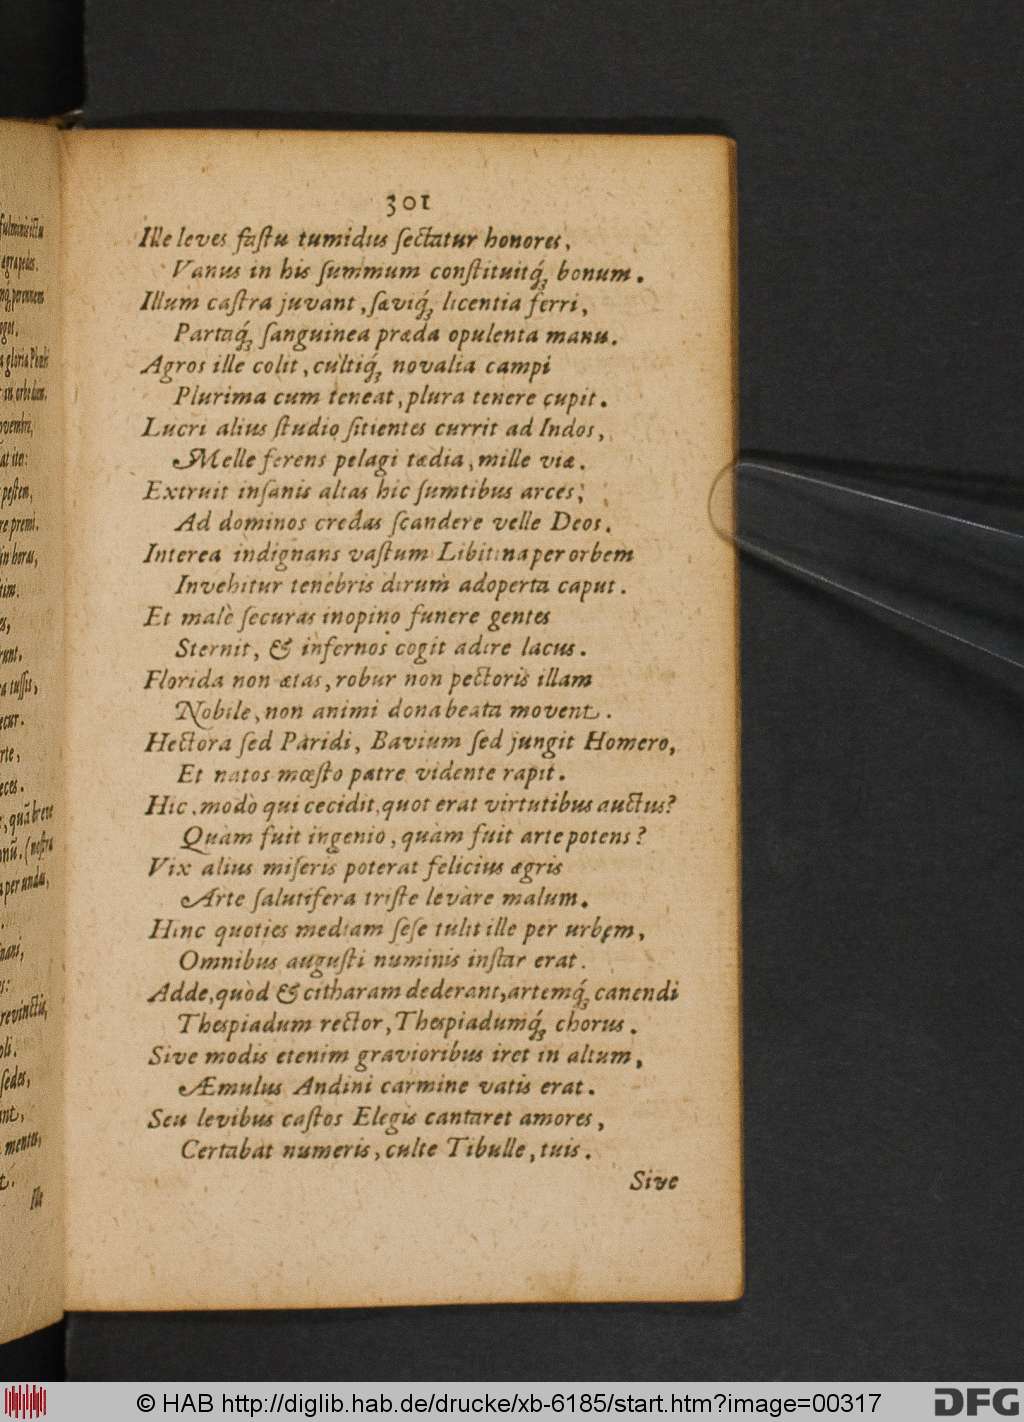 fulminis ictu
agra pedes.
perennem
gloria Phœbi
in orbe
ovembri,
at ito:
pestem,
re premi.
in horas,
tussis,
quã breve
nostra
per undas,
revinctus,
sedes,
Ille
301
Ille leves fastu tumidus sectatur honores,
Vanus in his summum constituitq́ꝫ bonum.
Illum castra juvant, sæviq́ꝫ licentia ferri,
Partaq́ꝫ sanguinea præda opulenta manu.
Agros ille colit, cultiq́ꝫ novalia campi
Plurima cum teneat, plura tenere cupit.
Lucri alius studio sitientes currit ad Indos,
Melle ferens pelagi tædia, mille viæ.
Extruit insanis altas hic sumtibus arces,
Ad dominos credas scandere velle Deos.
Interea indignans vastum Libitina per orbem
Invehitur tenebris dirum adoperta caput.
Et malè securas inopino funere gentes
Sternit, & infernos cogit adire lacus.
Florida non ætas, robur non pectoris illam
Nobile, non animi dona beata movent.
Hectora sed Paridi, Bavium sed jungit Homero,
Et natos mœsto patre vidente rapit.
Hic, modò qui cecidit, quot erat virtutibus auctus?
Quàm fuit ingenio, quàm fuit arte potens?
Vix alius miseris poterat felicius ægris
Arte salutifera triste levare malum.
Hinc quoties mediam sese tulit ille per urbem,
Omnibus augusti numinis instar erat.
Adde, quòd & citharam dederant, artemq́ꝫ canendi
Thespiadum rector, Thespiadumq́ꝫ chorus.
Sive modis etenim gravioribus iret in altum,
Æmulus Andini carmine vatis erat.
Seu levibus castos Elegis cantaret amores,
Certabat numeris, culte Tibulle, tuis.
Sive
© HAB http://diglib.hab.de/drucke/xb-6185/start.htm?image=00317
DFG